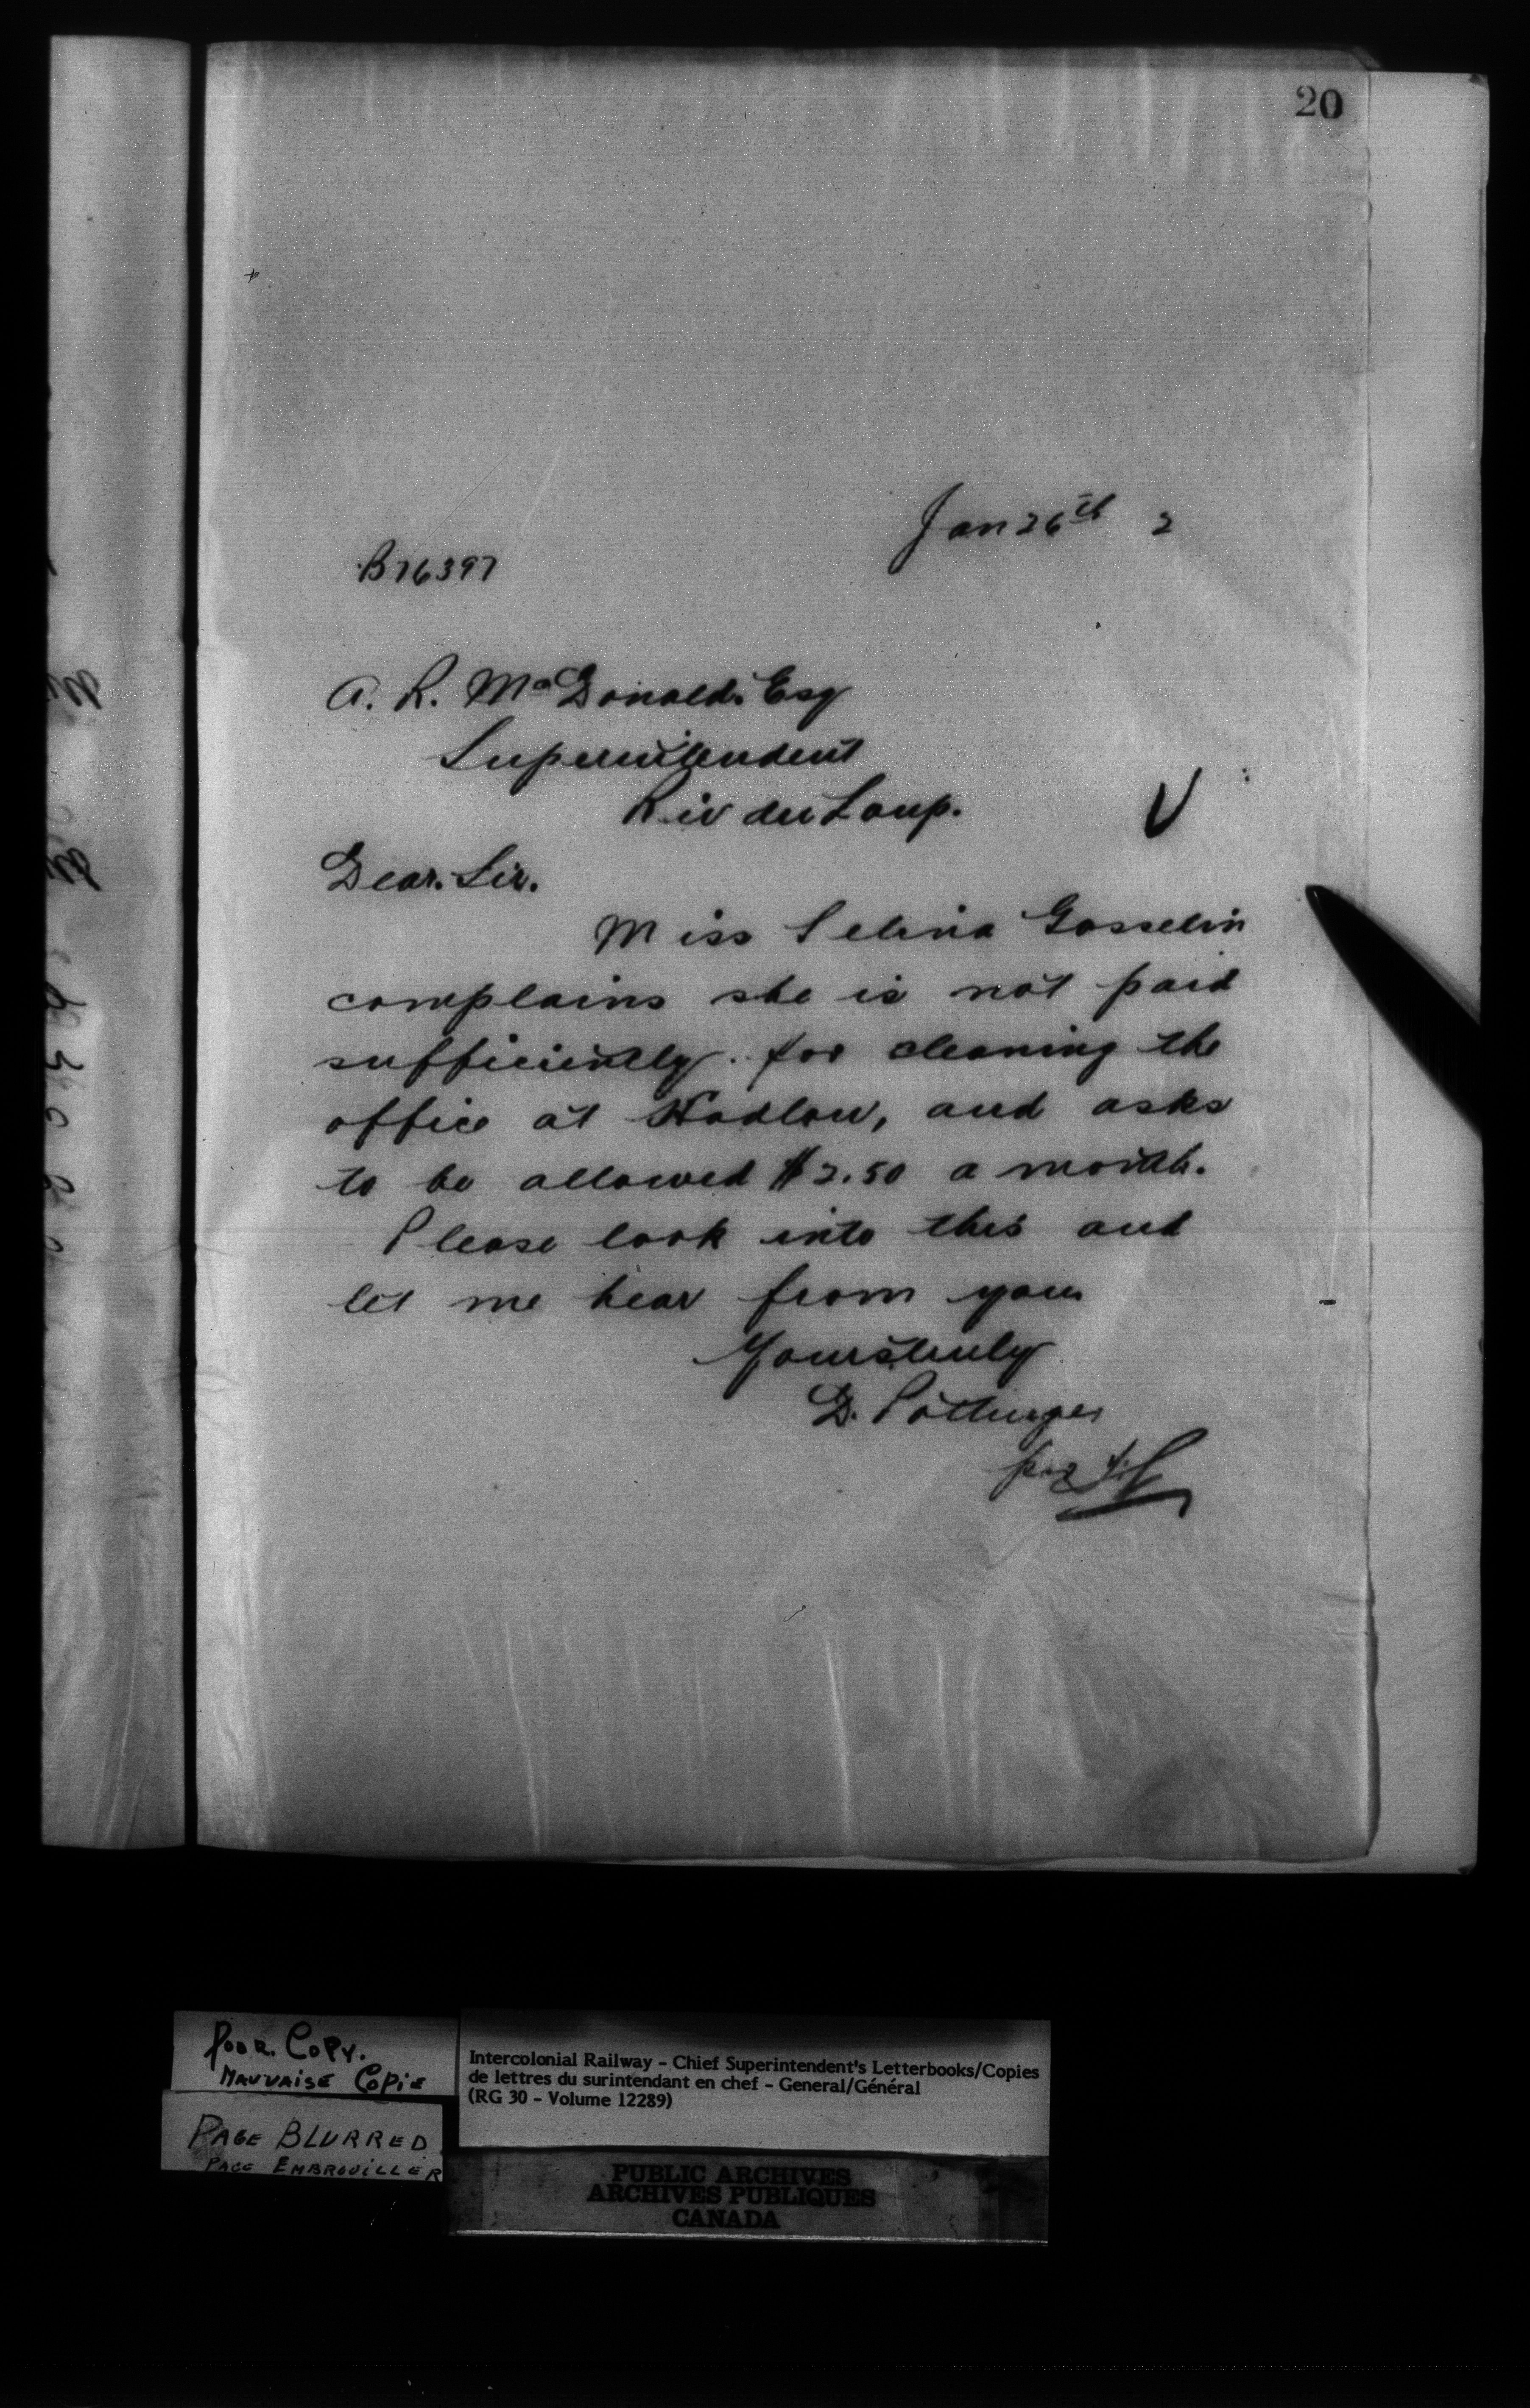 20
Jan 26th 2
B76397
A. R. McDonald. Esq
Superintendent
Riv du Loup.
V
Dear. Sir.
Miss Selina Gosselin
complains she is not paid
sufficiently. for cleaning the
office at Hadlow, and asks
to be allowed $2.50 a month.
Please look into this and
let me hear from you
Yours truly
D. Pottinger
Poor. Copy.
Mauvaise Copie
Page Blurred
Page Embrouiller
Intercolonial Railway - Chief Superintendent's Letterbooks/Copies
de lettres du surintendant en chef - General/Général
(RG 30 - Volume 12289)
PUBLIC ARCHIVES
ARCHIVES PUBLIQUES
CANADA